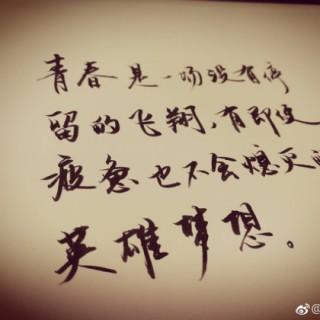 青春是一场没有停
留的飞翔，有即使
疲惫也不会熄灭的
英雄梦想。